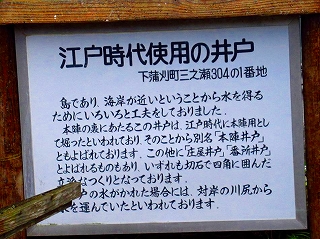 江戸時代使用の井戸
下蒲刈町三之瀬304の1番地
島であり、海岸が近いということから水を得る
ためにいろいろと工夫をしておりました。
本陣の裏にあたるこの井戸は、江戸時代に本陣用とし
て掘ったといわれており、そのことから別名「本陣井戸」
ともよばれております。この他に「庄屋井戸」「番所井戸」
とよばれるものもあり、いずれも切石で四角に囲んだ
つくりとなっております。
戸の水がかれた場合には、対岸の川尻から
を運んでいたといわれております。